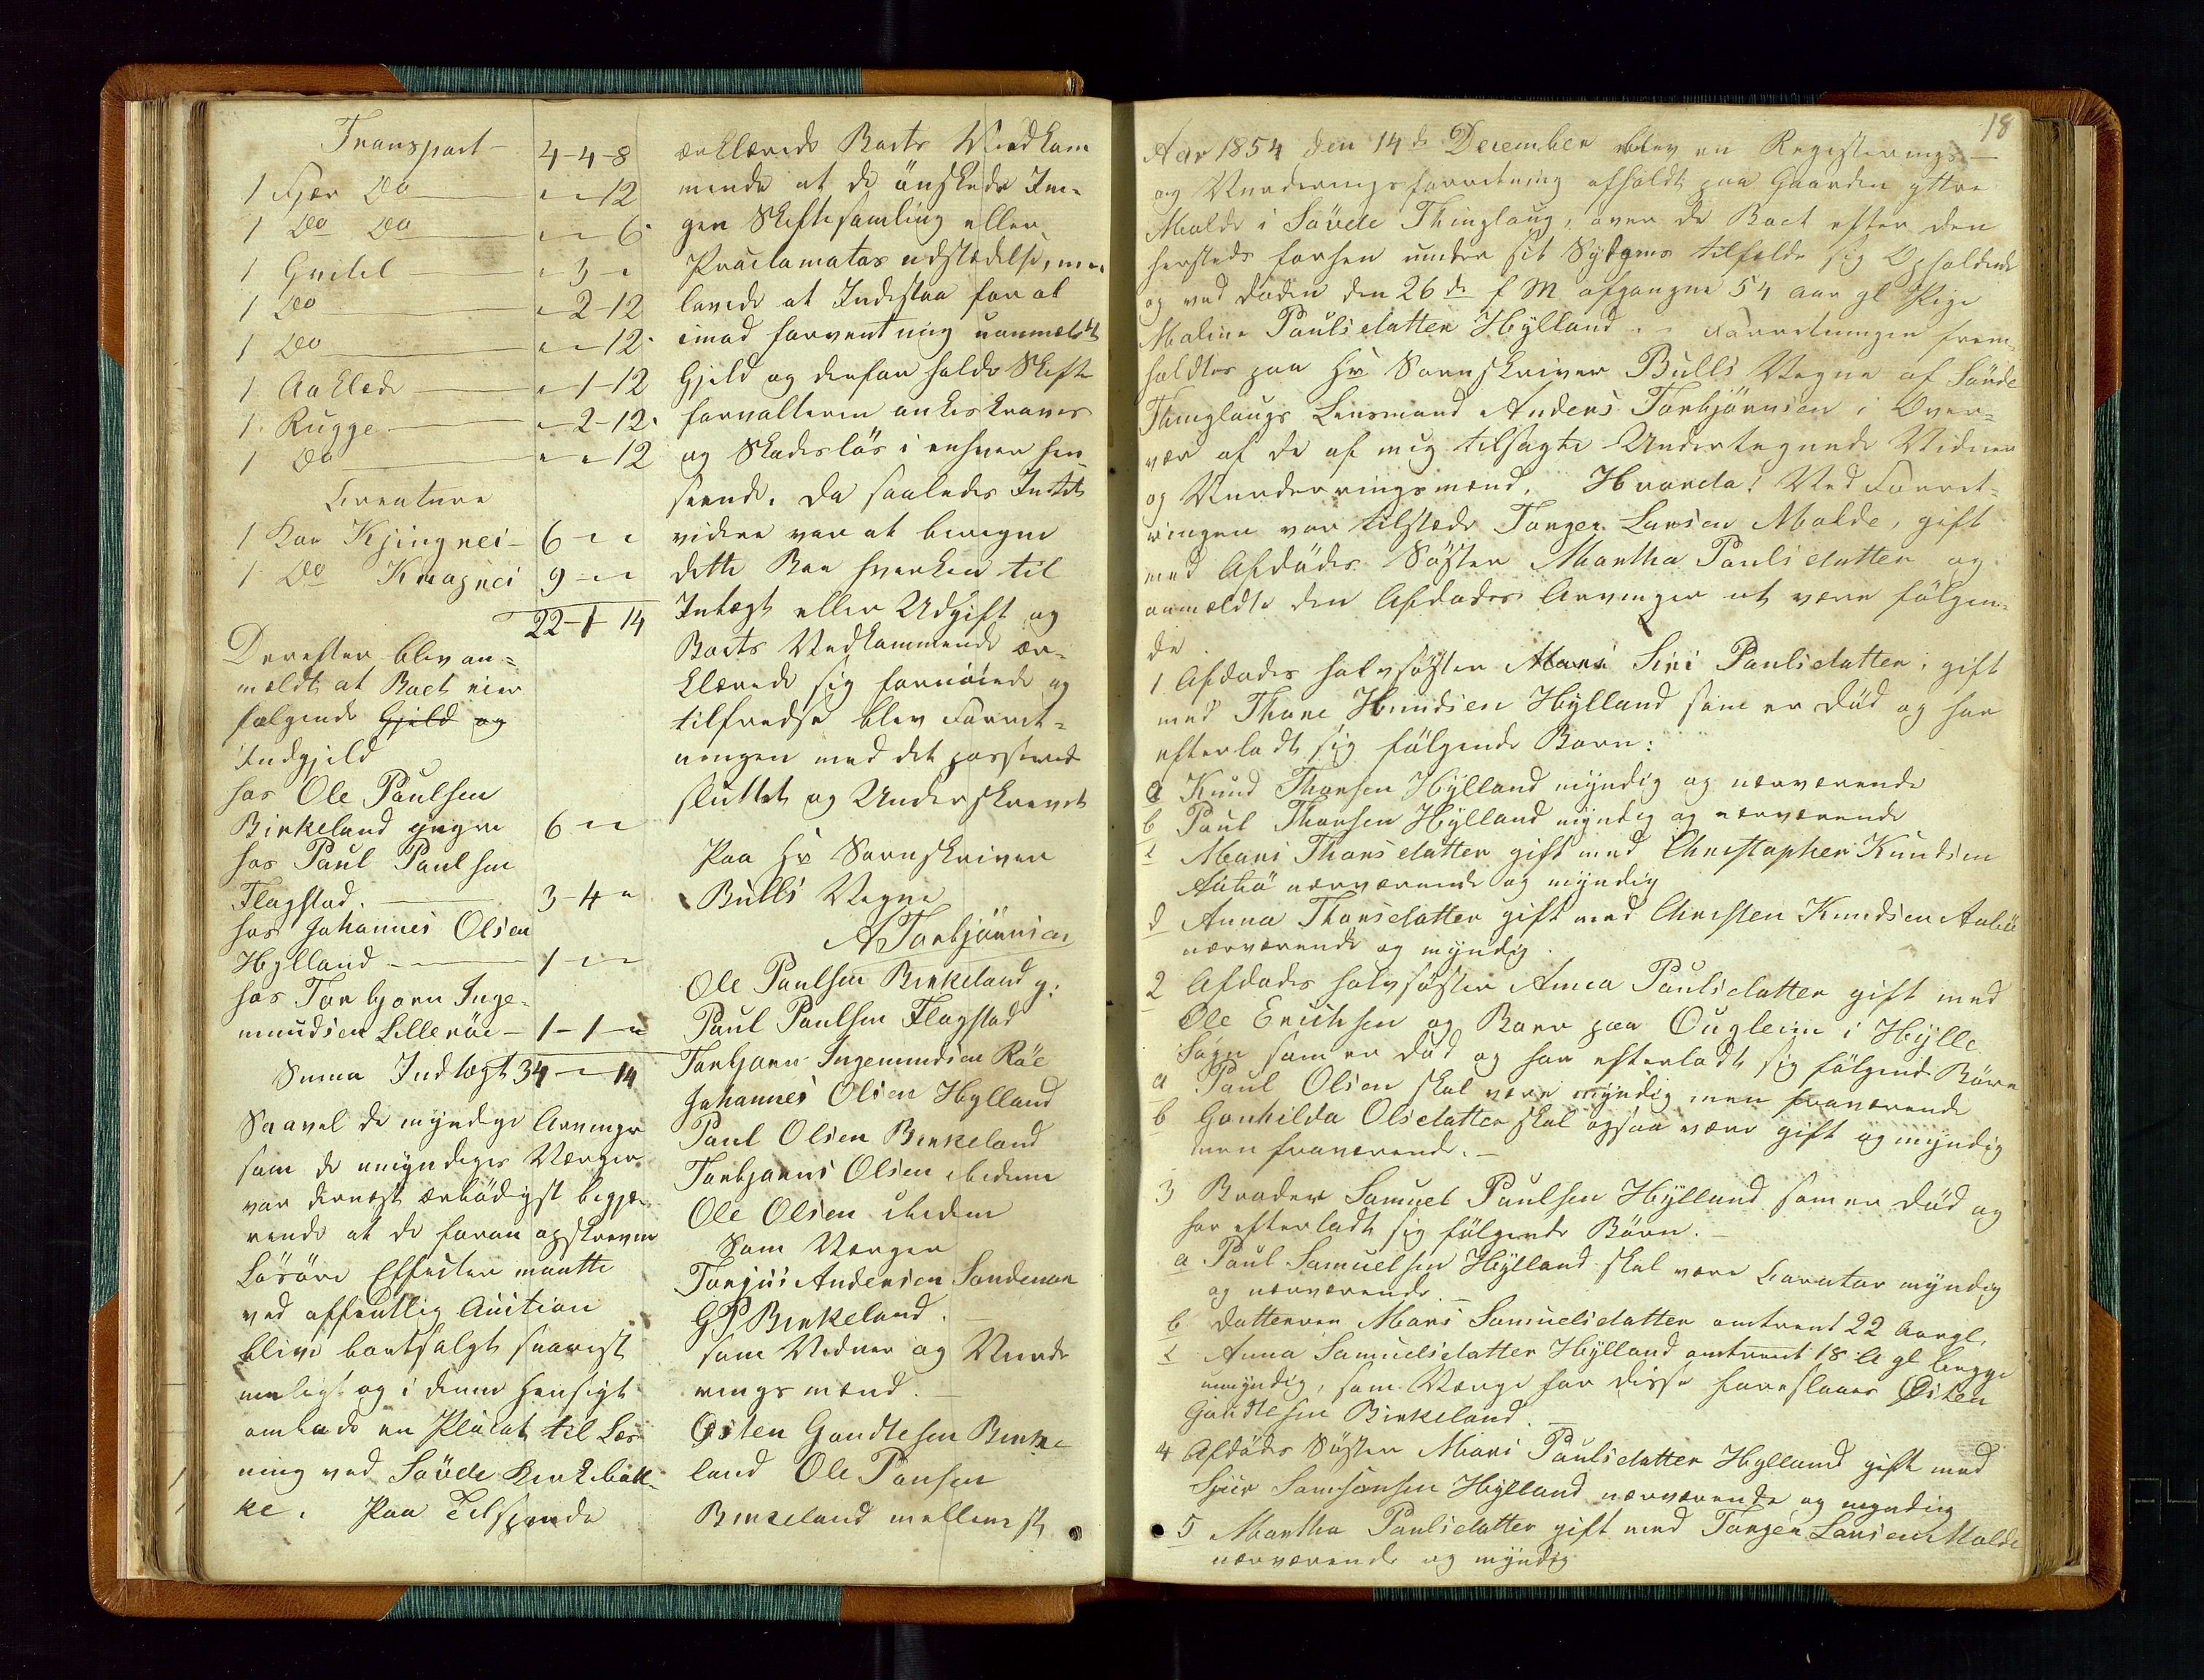 Transport - 4-4-8
1 Fjær Do " - " - 12
1 Do Do " - " - 6
1 Gritel " - 3 - "
1 Do " - 2 - 12
1 Do " - " - 12
1 Aaklæde " - 1 - 12
1 Rugge " - 2 - 12
1 Do " - " - 12
Creature
1 Koe Kjingrei - 6 - " - "
1 Do Kragrei 9 - " - "
22-1-14
Derefter blev an=
meldt at Boet eier
følgende Gjeld og
Indgjeld
hos Ole Paulsen
Birkeland yngre 6 " "
hos Paul Paulsen
Flagstad. 3-4-"
hos Johannes Olsen
Hylland 1 - " - "
hos Torbjørn Inge=
mundsen Lillerøe - 1-1-"
Suma Indtægt 34 - " - 14
Saavel de myndige Arvinger
som de umyndiges Værger
var dernæst ærbødigst begjæ=
rende at de foran opskrevne
Løsøre Effecter maatte
ved offentlig Auction
blive bortsolgt snarest
muligt og i denne Hensigt
ombade en Placat til Læs=
ning ved Søvde Kirkebak=
ke. Paa Tilspørgende
erklærede Boets Vedkom
mende at de ønskede In=
gen Skiftesamling eller
Proclamatas udstædelse, men
lovede at Indestaa for al
imod forventning uanmeldt
Gjeld og derfor holde Skifte
forvalteren ankeskraves
og Skadesløs i enhver hen
seende. Da saaledes Intet
videre var at beregne
dette Boe hverken til
Intægt eller Udgift og
Boets Vedkommende er=
klærede sig fornøiede og
tilfredse blev Forret=
ningen med det passerede
sluttet og Underskrevet
Paa Hr Sorenskriver
Bulls Vegne
A Torbjørnsen
Ole Paulsen Birkeland y:
Paul Paulsen Flagstad
Torbjørn Ingemundsen Røe
Johannes Olsen Hylland
Paul Olsen Birkeland
Torbjørns Olsen ibidem
Ole Olsen ibidem
Som Værger
Torjus Andersen Sandenan
GP Birkeland.
som Vidner og Vurde
ringsmænd.
Østen Gaudtesen Birke
land Ole Paulsen
Birkeland mellemst
18
Aar 1854 den 14de December blev en Registerings-
og Vurderingsforretning afholdt paa Gaarden yttre
Molde i Søvde Thinglaug, over de Boet efter den
hersteds forhen under sit Sygdoms tilfælde sig Opholdende
og ved døden den 26de f M afgangne 54 aar gl Pige
Maline Paulsdatter Hylland. - Forretningen frem=
holdtes paa Hr Sorenskriver Bulls Vegne af Søvde
Thinglaugs Lensmand Anders Torbjørnsen i Over=
vær af de af mig tilsagte Undertegnede Vidner
og Vurderringsmænd. Hvorda! Ved Forret=
ningen var tilstæde Torger Larsen Molde, gift
med Afdødes Søster Martha Paulsdatter og
anmeldte den Afdødes Arvinger at være følgen=
de
1 Afdødes halvsøster Siri Paulsdatter, gift
med Thore Knudsen Hylland som er død og har
efterladt sig følgende Børn:
a Knud Thorsen Hylland myndig og nærværende
b Paul Thorsen Hylland myndig og nærværende
c Mari Thorsdatter gift med Christopher Knudsen
nærværende og myndig
d Anna Thorsdatter gift med Christen Knudsen
nærværende og myndig.
2 Afdødes halvsøster Anna Paulsdatter gift med
Ole Erichsen og Boer paa Ougleim i Hylle
Sogn som er død og har efterladt sig følgende Børn
a Paul Olsen skal være myndig men fraværende
b Gonhilda Olsdatter skal ogsaa være gift og myndig
men fraværende. -
3 Broder Samuel Paulsen Hylland som er død og
har efterladt sig følgende Børn. -
a Paul Samuelsen Hylland skal være Curator myndig
og nærværende. -
b datteren Mari Samuelsdatter omtrent 22 Aargl.
c Anna Samuelsdatter Hylland omtrent 18 A gl begge
umyndig, som Værge for disse foreslaaes Østen
Gaudtesen Birkeland.
4 Afdødes Søster Mari Paulsdatter Hylland gift med
Sjur Samsonsen Hylland nærværende og myndig
5 Martha Paulsdatter gift med Torger Larsen Molde
nærværende og myndig